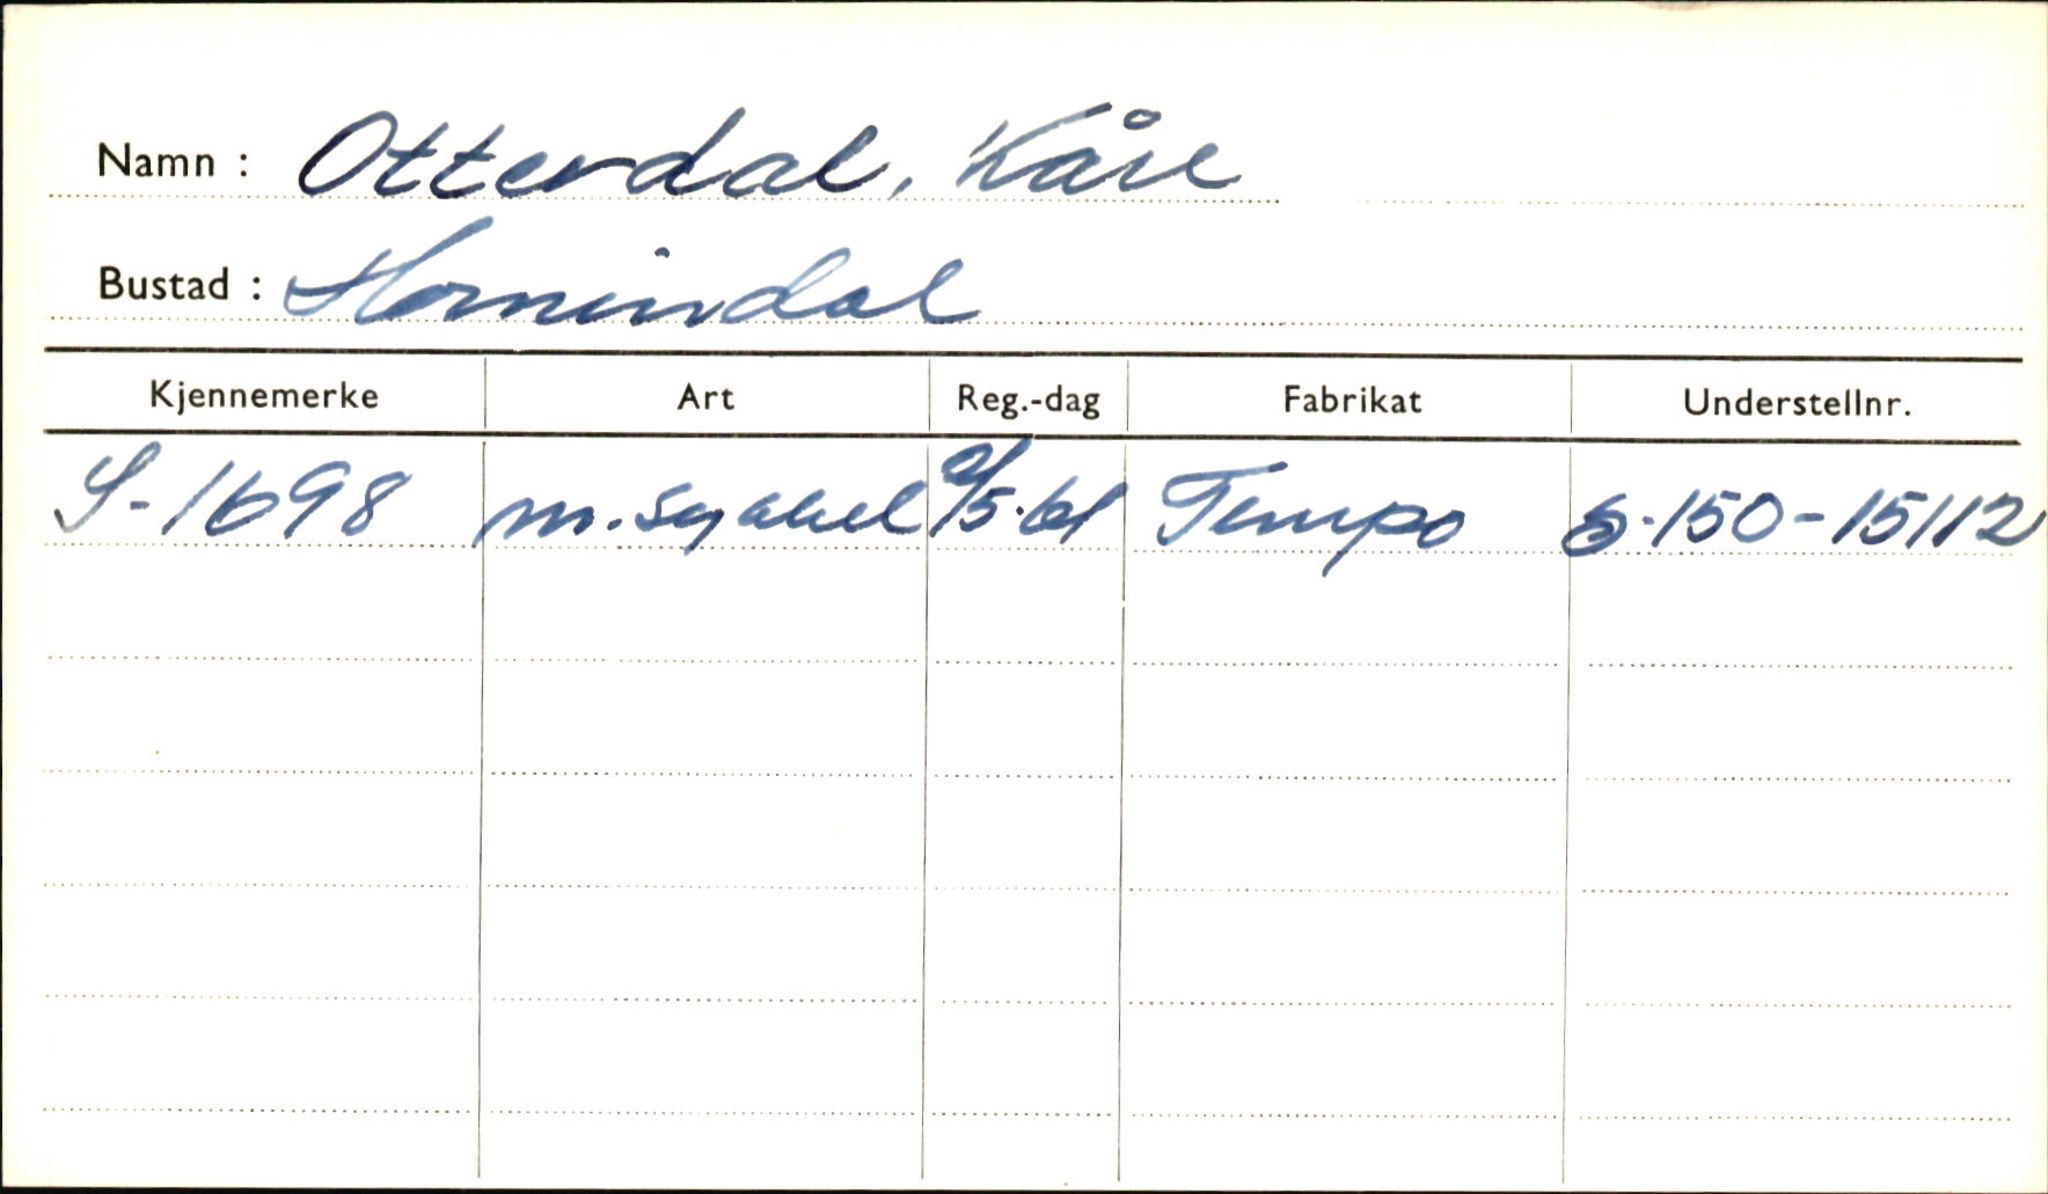 Namn : Otterdal, Kåre
Bustad : Hornindal
Kjennemerke Art Reg.-dag Fabrikat Understellnr.
S-1698 m.sykkel /5.61 Tempo 150-15112